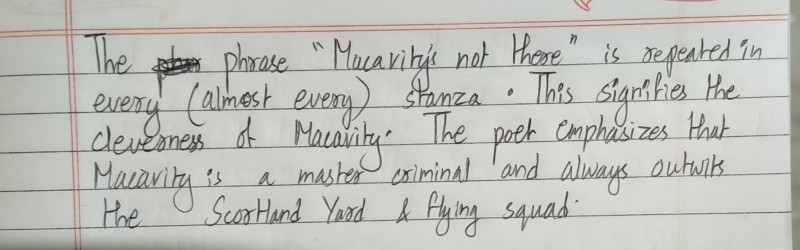 The phrase "Macavity's not there" is repeated in
every (almost every) stanza. This signifies the
cleverness of Macavity. The poet emphasizes that
Macavity is a master criminal and always outwits
the Scortland Yard & flying squad.